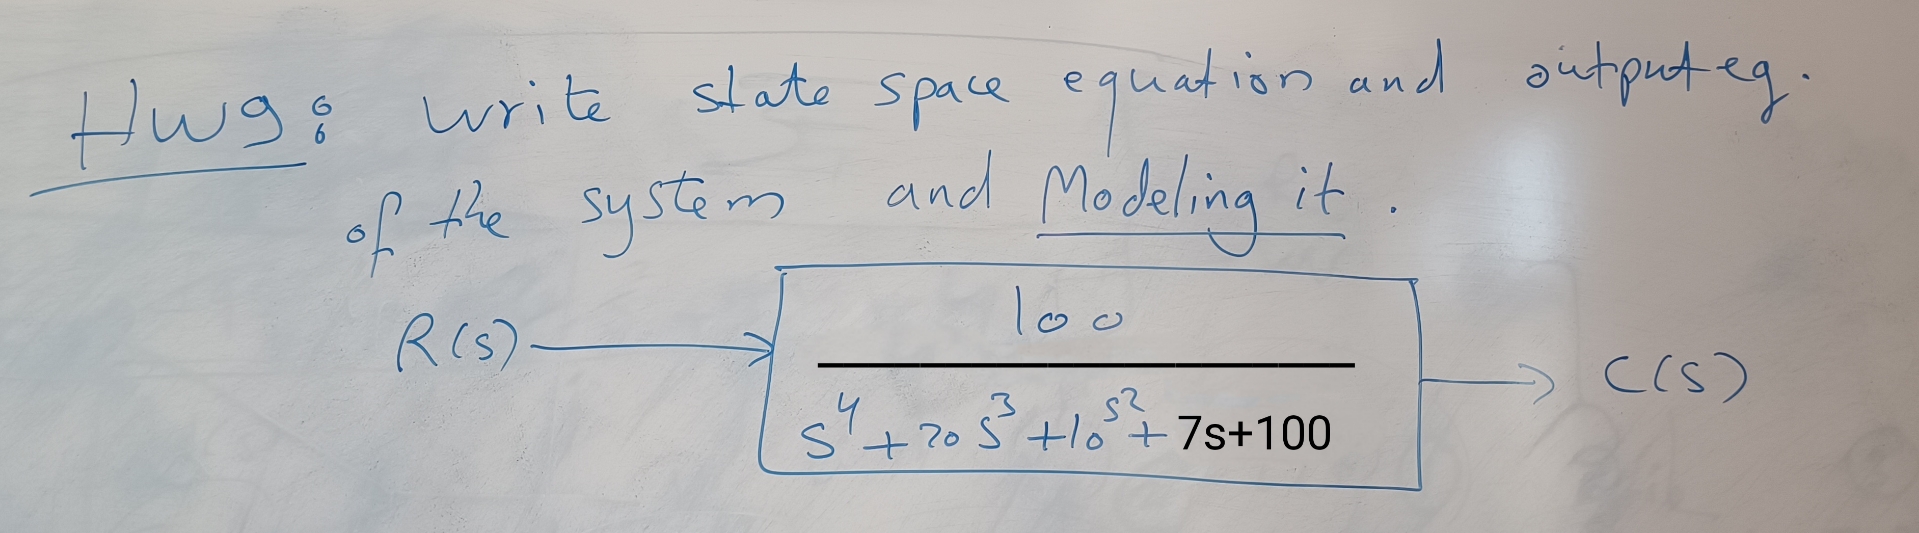 Hw9: write state space equation and output eq.
of the system and Modeling it.
R(s) 100 C(s)
s⁴+20s³+10s²+7s+100